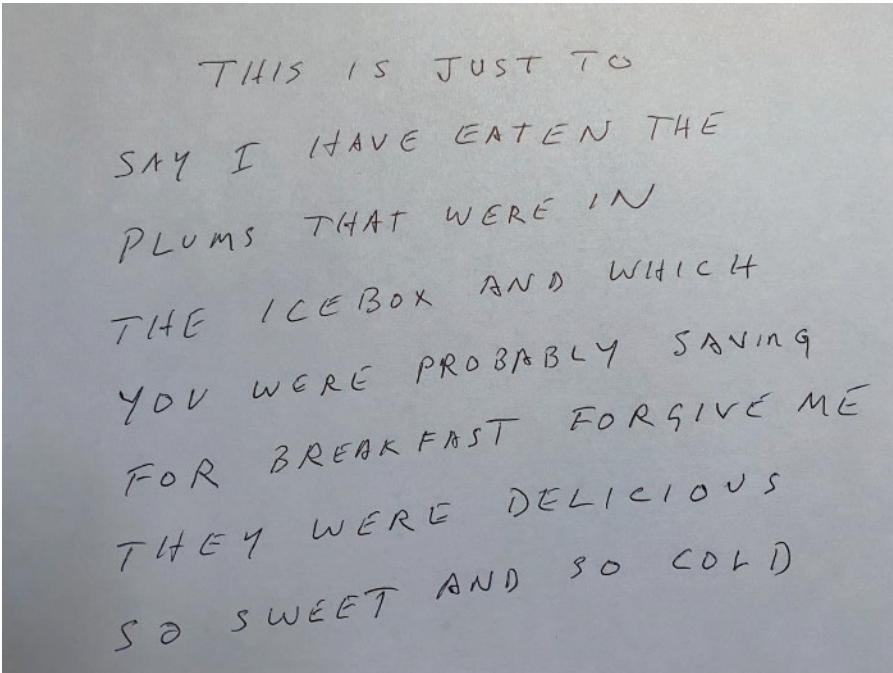 THIS IS JUST TO
SAY I HAVE EATEN THE
PLUMS THAT WERE IN
THE ICEBOX AND WHICH
YOU WERE PROBABLY SAVING
FOR BREAKFAST FORGIVE ME
THEY WERE DELICIOUS
SO SWEET AND SO COLD